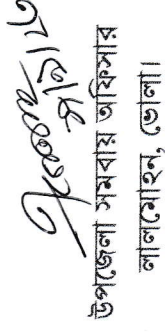 উপজেলা সমবায় অফিসার
লালমোহন, ভোলা।